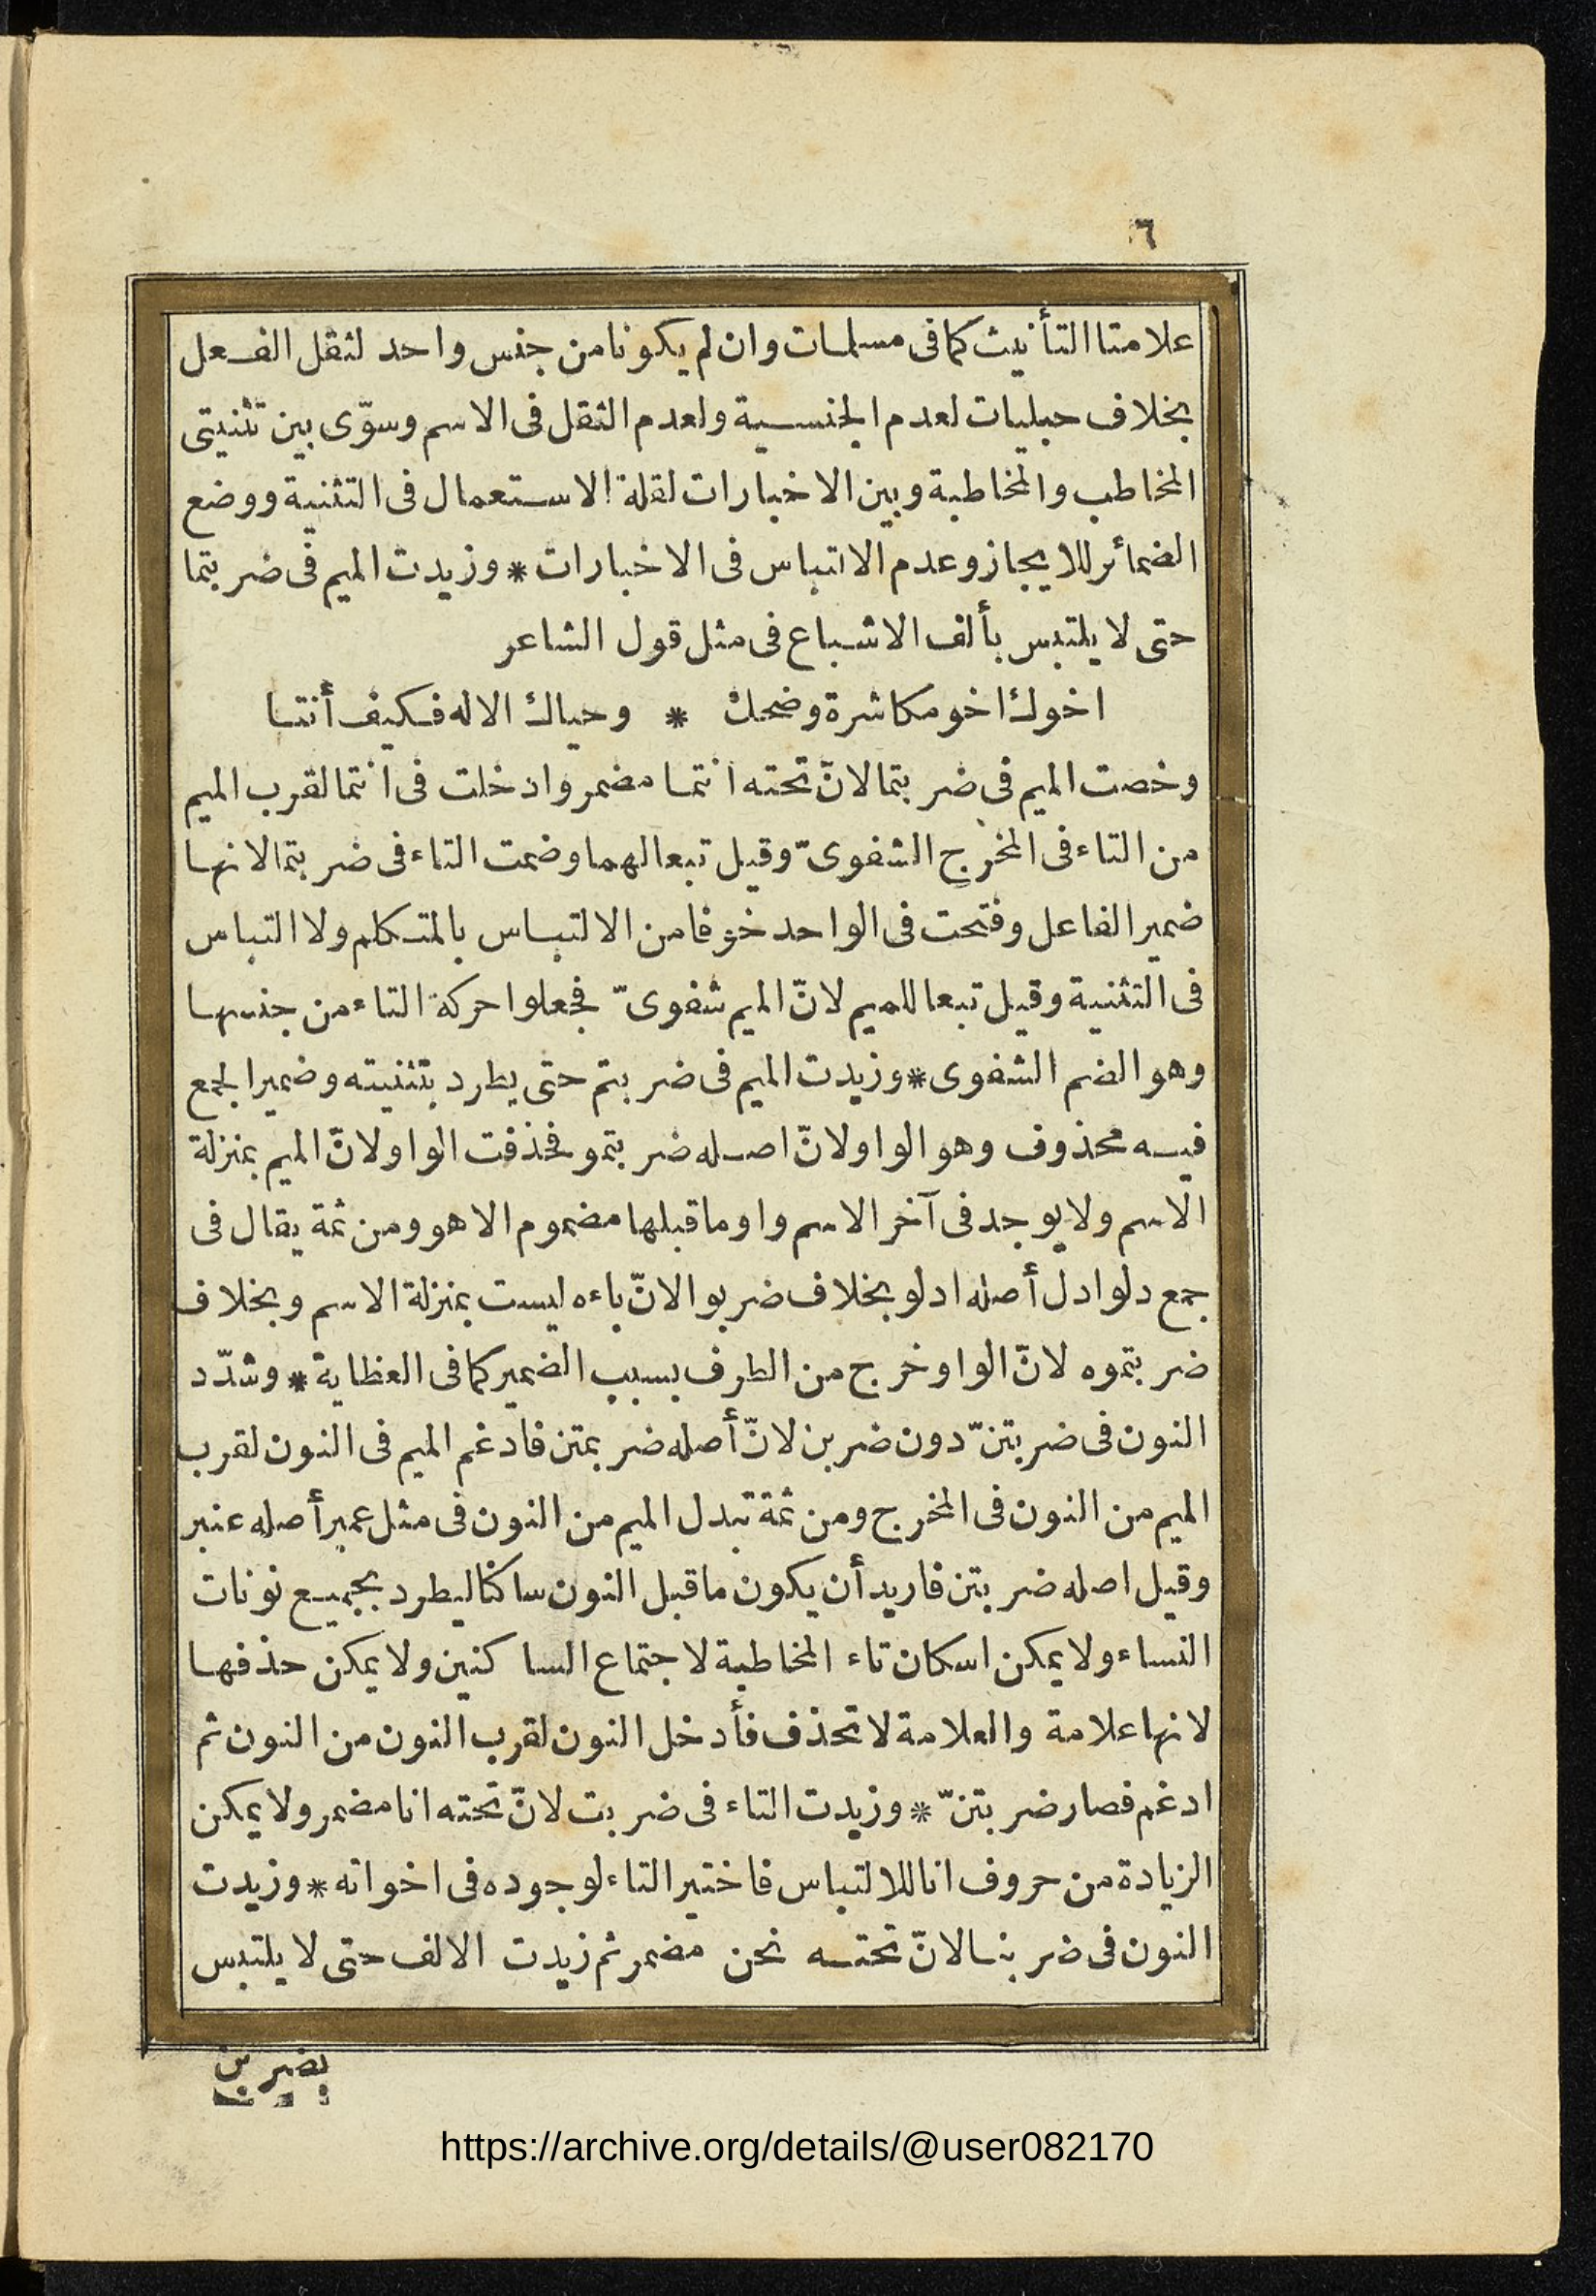 ٦
علامتا التأنيث كما فى مسلمات وان لم يكونا من جنس واحد لثقل الفعل
بخلاف حبليات لعدم الجنسية ولعدم الثقل فى الاسم وسوّى بين تثنيتى
المخاطب والمخاطبة وبين الاخبارات لقلة الاستعمال فى التثنية ووضع
الضمائر للايجاز وعدم الالتباس فى الاخبارات * وزيدت الميم فى ضربتما
حتى لا يلتبس بألف الاشباع فى مثل قول الشاعر
اخوك اخو مكاشرة وضحك * وحياك الاله فكيف أنتا
وخصت الميم فى ضربتما لانّ تحته انتما مضمر وادخلت فى انتما لقرب الميم
من التاء فى المخرج الشفوىّ وقيل تبعا لهما وضمت التاء فى ضربتما لانها
ضمير الفاعل وفتحت فى الواحد خوفا من الالتباس بالمتكلم ولا التباس
فى التثنية وقيل تبعا للميم لانّ الميم شفوىّ فجعلوا حركة التاء من جنسها
وهو الضم الشفوى * وزيدت الميم فى ضربتم حتى يطرد بتثنيته وضمير الجمع
فيه محذوف وهو الواو لانّ اصله ضربتمو فحذفت الواو لانّ الميم بمنزلة
الاسم ولا يوجد فى آخر الاسم واو ما قبلها مضموم الا هو ومن ثمة يقال فى
جمع دلو ادل أصله ادلو بخلاف ضربوا لانّ باءه ليست بمنزلة الاسم وبخلاف
ضربتموه لانّ الواو خرج من الطرف بسبب الضمير كما فى العظاية * وشدّد
النون فى ضربتنّ دون ضربن لانّ أصله ضربتمن فادغم الميم فى النون لقرب
الميم من النون فى المخرج ومن ثمة تبدل الميم من النون فى مثل عمبر أصله عنبر
وقيل اصله ضربتن فاريد أن يكون ما قبل النون ساكنا ليطرد بجميع نونات
النساء ولا يمكن اسكان تاء المخاطبة لاجتماع الساكنين ولا يمكن حذفها
لانها علامة والعلامة لا تحذف فأدخل النون لقرب النون من النون ثم
ادغم فصار ضربتنّ * وزيدت التاء فى ضربت لانّ تحته انا مضمر ولا يمكن
الزيادة من حروف انا للالتباس فاختير التاء لوجوده فى اخواته * وزيدت
النون فى ضربنا لانّ تحته نحن مضمر ثم زيدت الالف حتى لا يلتبس
بضربن
https://archive.org/details/@user082170